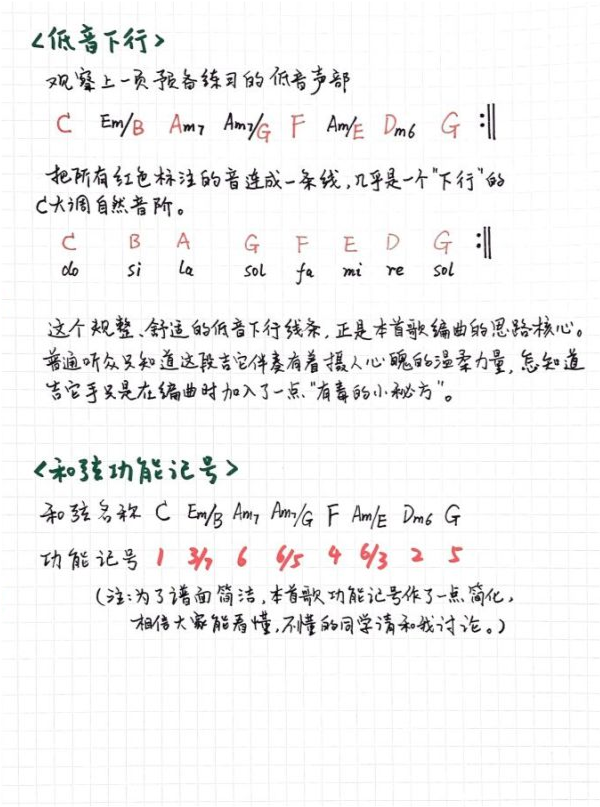 <低音下行>
观察上一页预备练习的低音声部
C Em/B Am7 Am7/G F Am/E Dm6 G :||
把所有红色标注的音连成一条线,几乎是一个"下行"的
C大调自然音阶。
C B A G F E D G :||
do si la sol fa mi re sol
这个规整、舒适的低音下行线条,正是本首歌编曲的思路核心。
普通听众只知道这段吉它伴奏有着摄人心魄的温柔力量,怎知道
吉它手只是在编曲时加入了一点"有毒的小秘方"。
<和弦功能记号>
和弦名称 C Em/B Am7 Am7/G F Am/E Dm6 G
功能记号 1 3/7 6 6/5 4 6/3 2 5
(注:为了谱面简洁,本首歌功能记号作了一点简化,
相信大家能看懂,不懂的同学请和我讨论。)